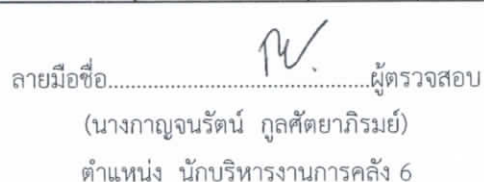 ลายมือชื่อ..........................................ผู้ตรวจสอบ
(นางกาญจนรัตน์ กูลศัตยาภิรมย์)
ตำแหน่ง นักบริหารงานการคลัง 6